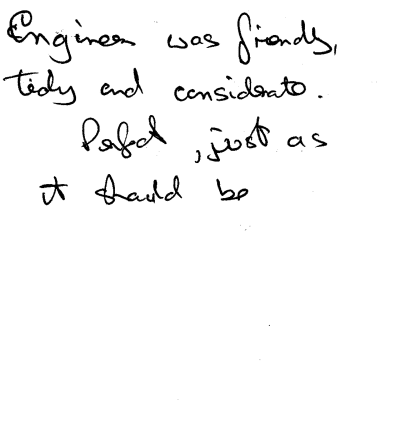 Engineer was friendly,
tidy and considerate.
Perfect, just as
it should be